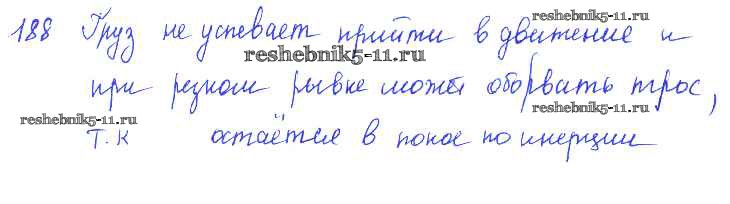 188 Груз не успевает прийти в движение и
при резком рывке может оборвать трос,
т.к остаётся в покое по инерции
reshebnik5-11.ru
reshebnik5-11.ru
reshebnik5-11.ru
reshebnik5-11.ru
reshebnik5-11.ru